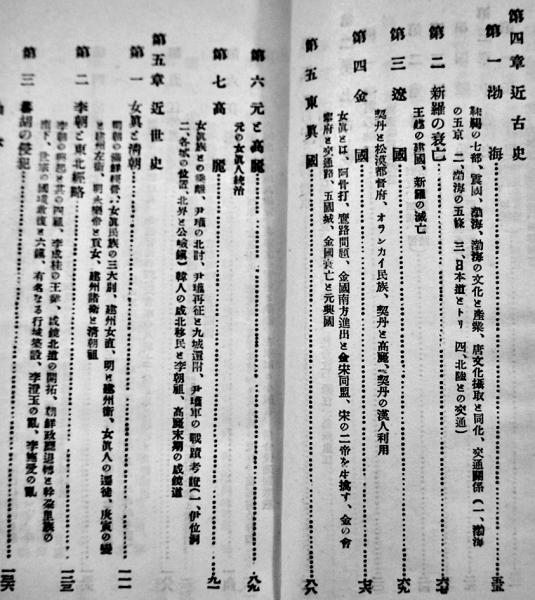 第四章 近古史
第一 渤海
靺鞨の七部、震國、渤海、渤海の文化と產業 唐文化攝取と同化、交通關係(一、渤海
の五京 二、渤海の五條 三、日本道とトリ 四、北陸との交通)
第二 新羅の衰亡
王建の建國、新羅の滅亡
第三 遼國
契丹と松漠都督府、オランカイ民族、契丹と高麗、契丹の漢人利用
第四 金國
女眞とは、阿骨打、鷺路問題、金國南方進出と金宋同盟、宋の二帝を生擒す、金の會
寧府と交通路、五國城、金國衰亡と元興國
第五 東眞國
第六 元と高麗
元の女眞人統治
第七 高麗
女眞族との乘離、尹瓘の北討、尹瓘再征と九城還附、尹瓘軍の戰蹟考證(一、伊位洞
二、各城の位置、北界と公嶮鎭)韓人の咸北移民と李朝祖、高麗末期の咸鏡道
第五章 近世史
第一 女眞と淸朝
明朝の 女眞民族の三大別、建州女直、明と建州衞、女眞人の遷徙、庚寅の變
と建州左衞、明永樂帝と貢女、建州諸衞と淸朝祖
第二 李朝と東北經略
李朝の興起と其の四祖、李成桂の王業、咸鏡北道の開拓、朝鮮政廳
南下、世宗の國境收復と六鎭、有名なる行城築設、李澄玉の亂、李施愛の亂
第三 の侵犯
九一